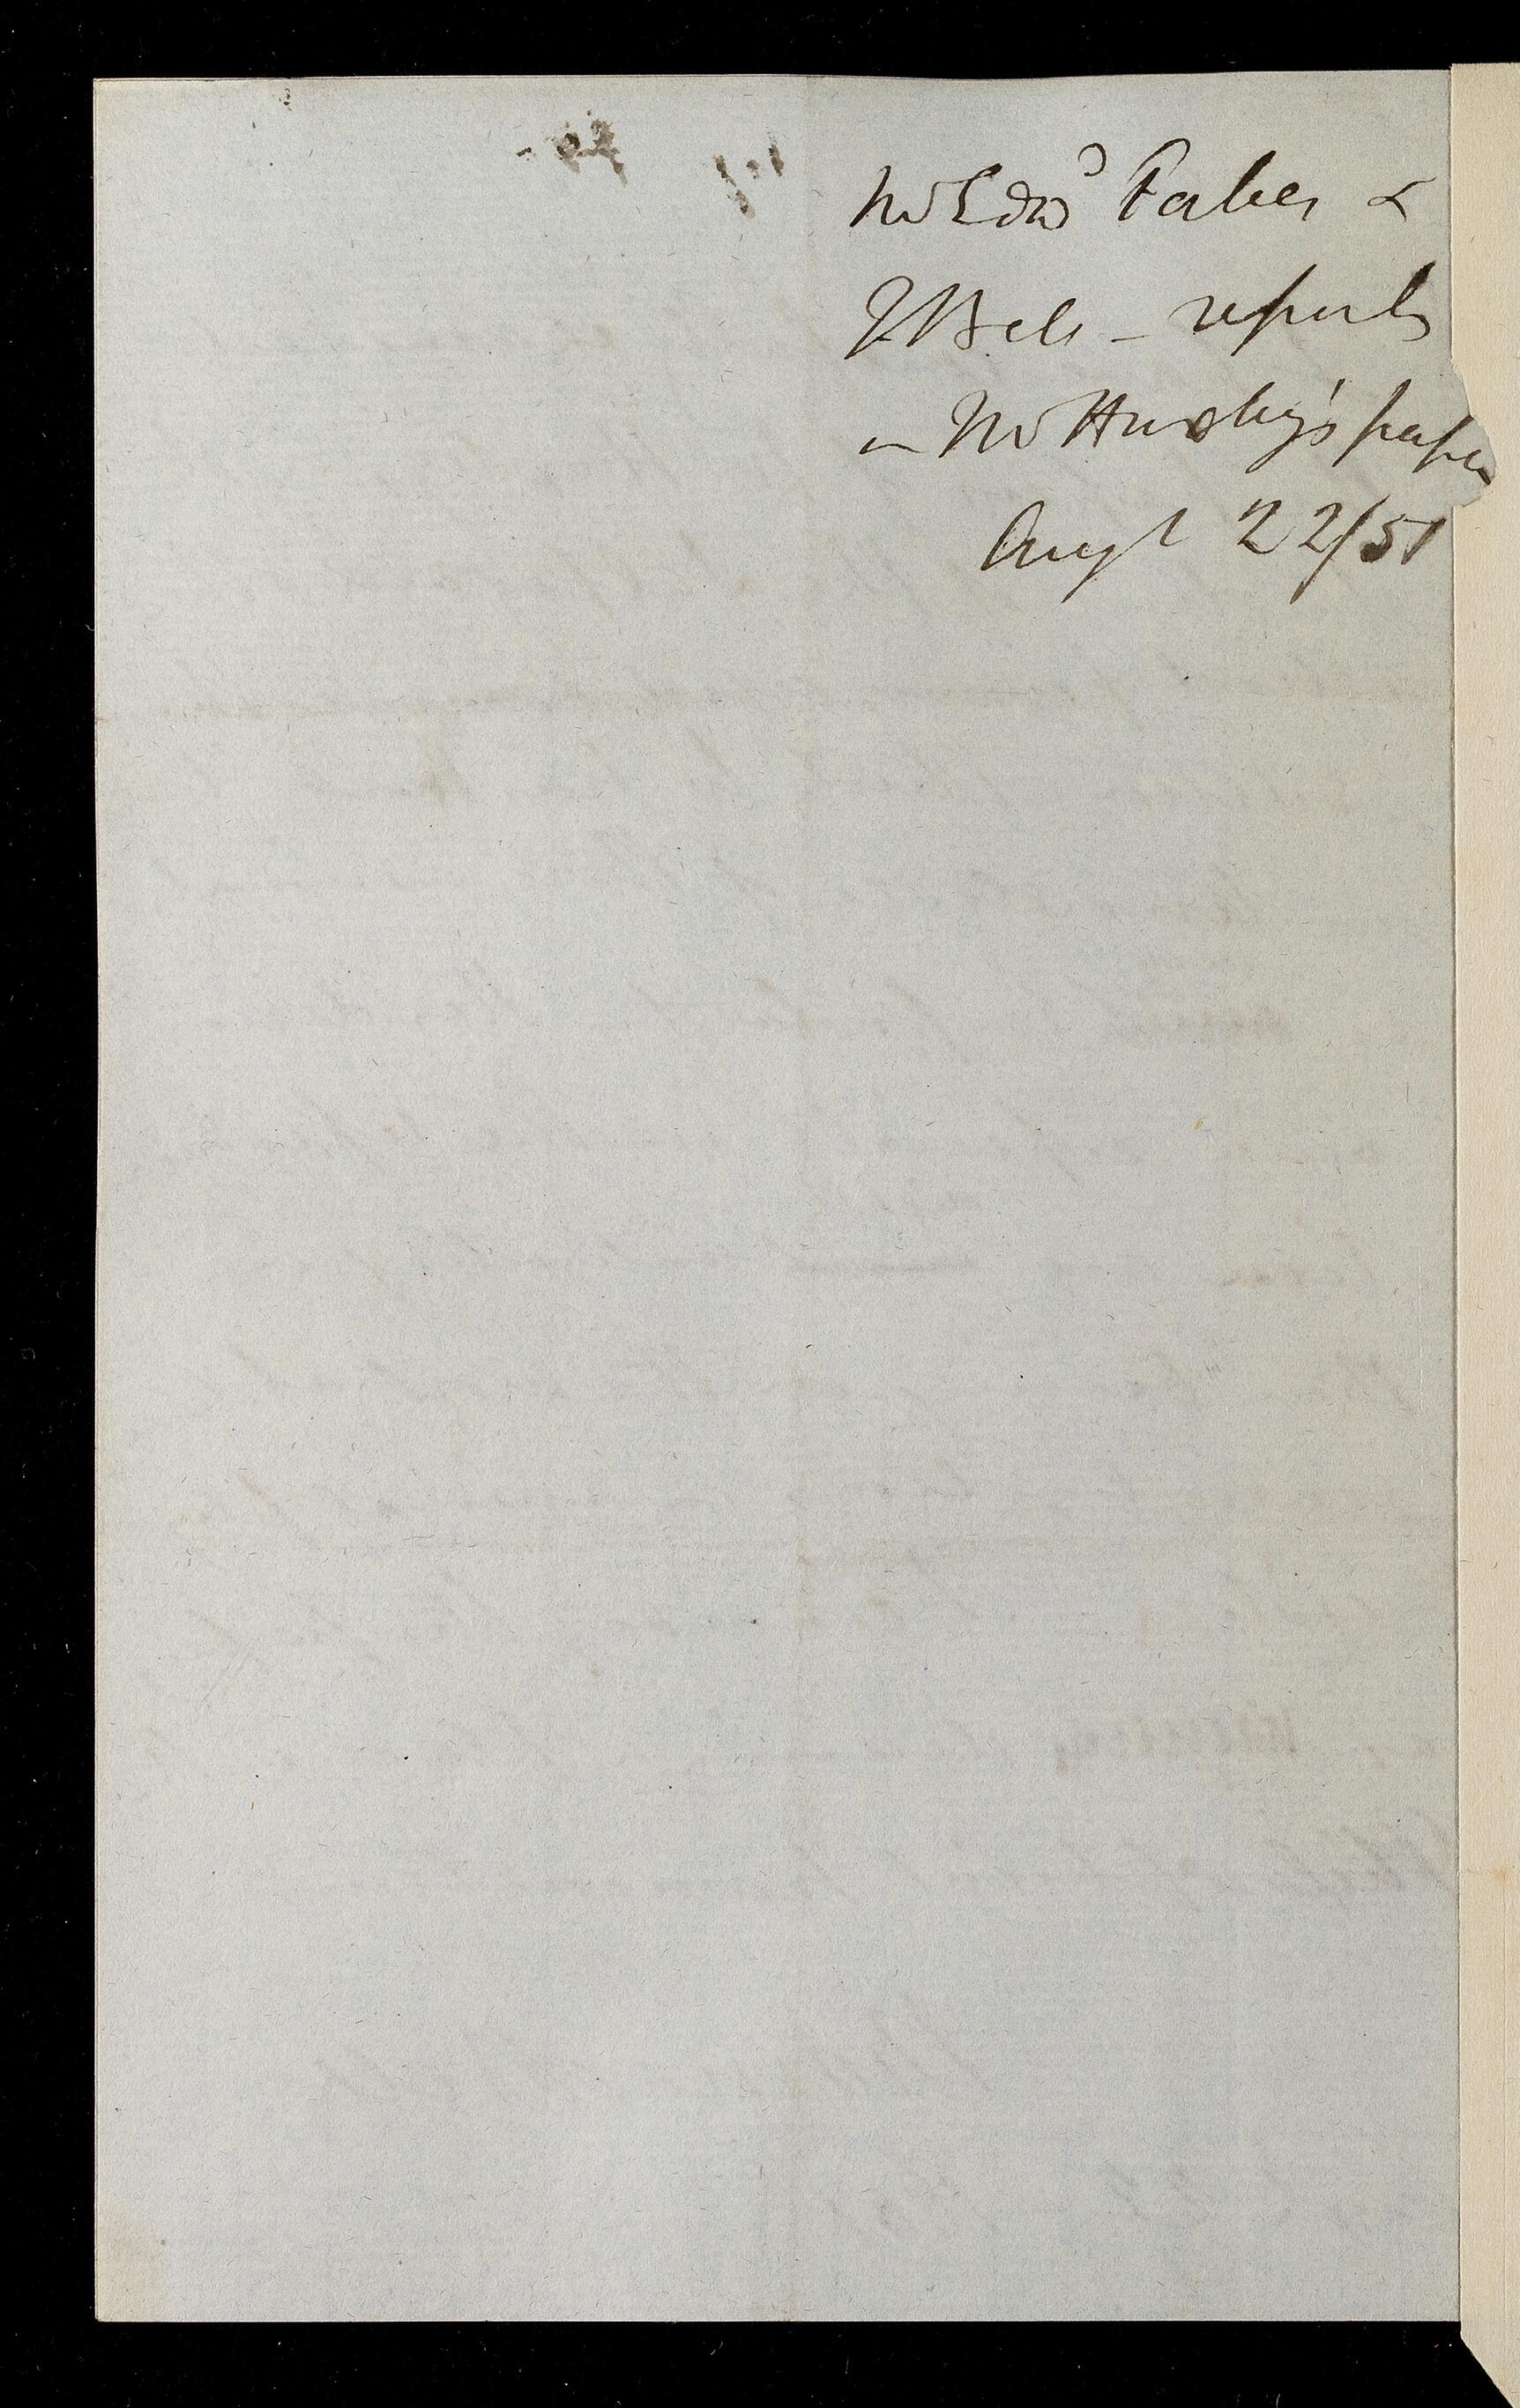 Mr Edwd Forbes &
T Bell – reports
on Mr Huxley's paper
Augt 22/51